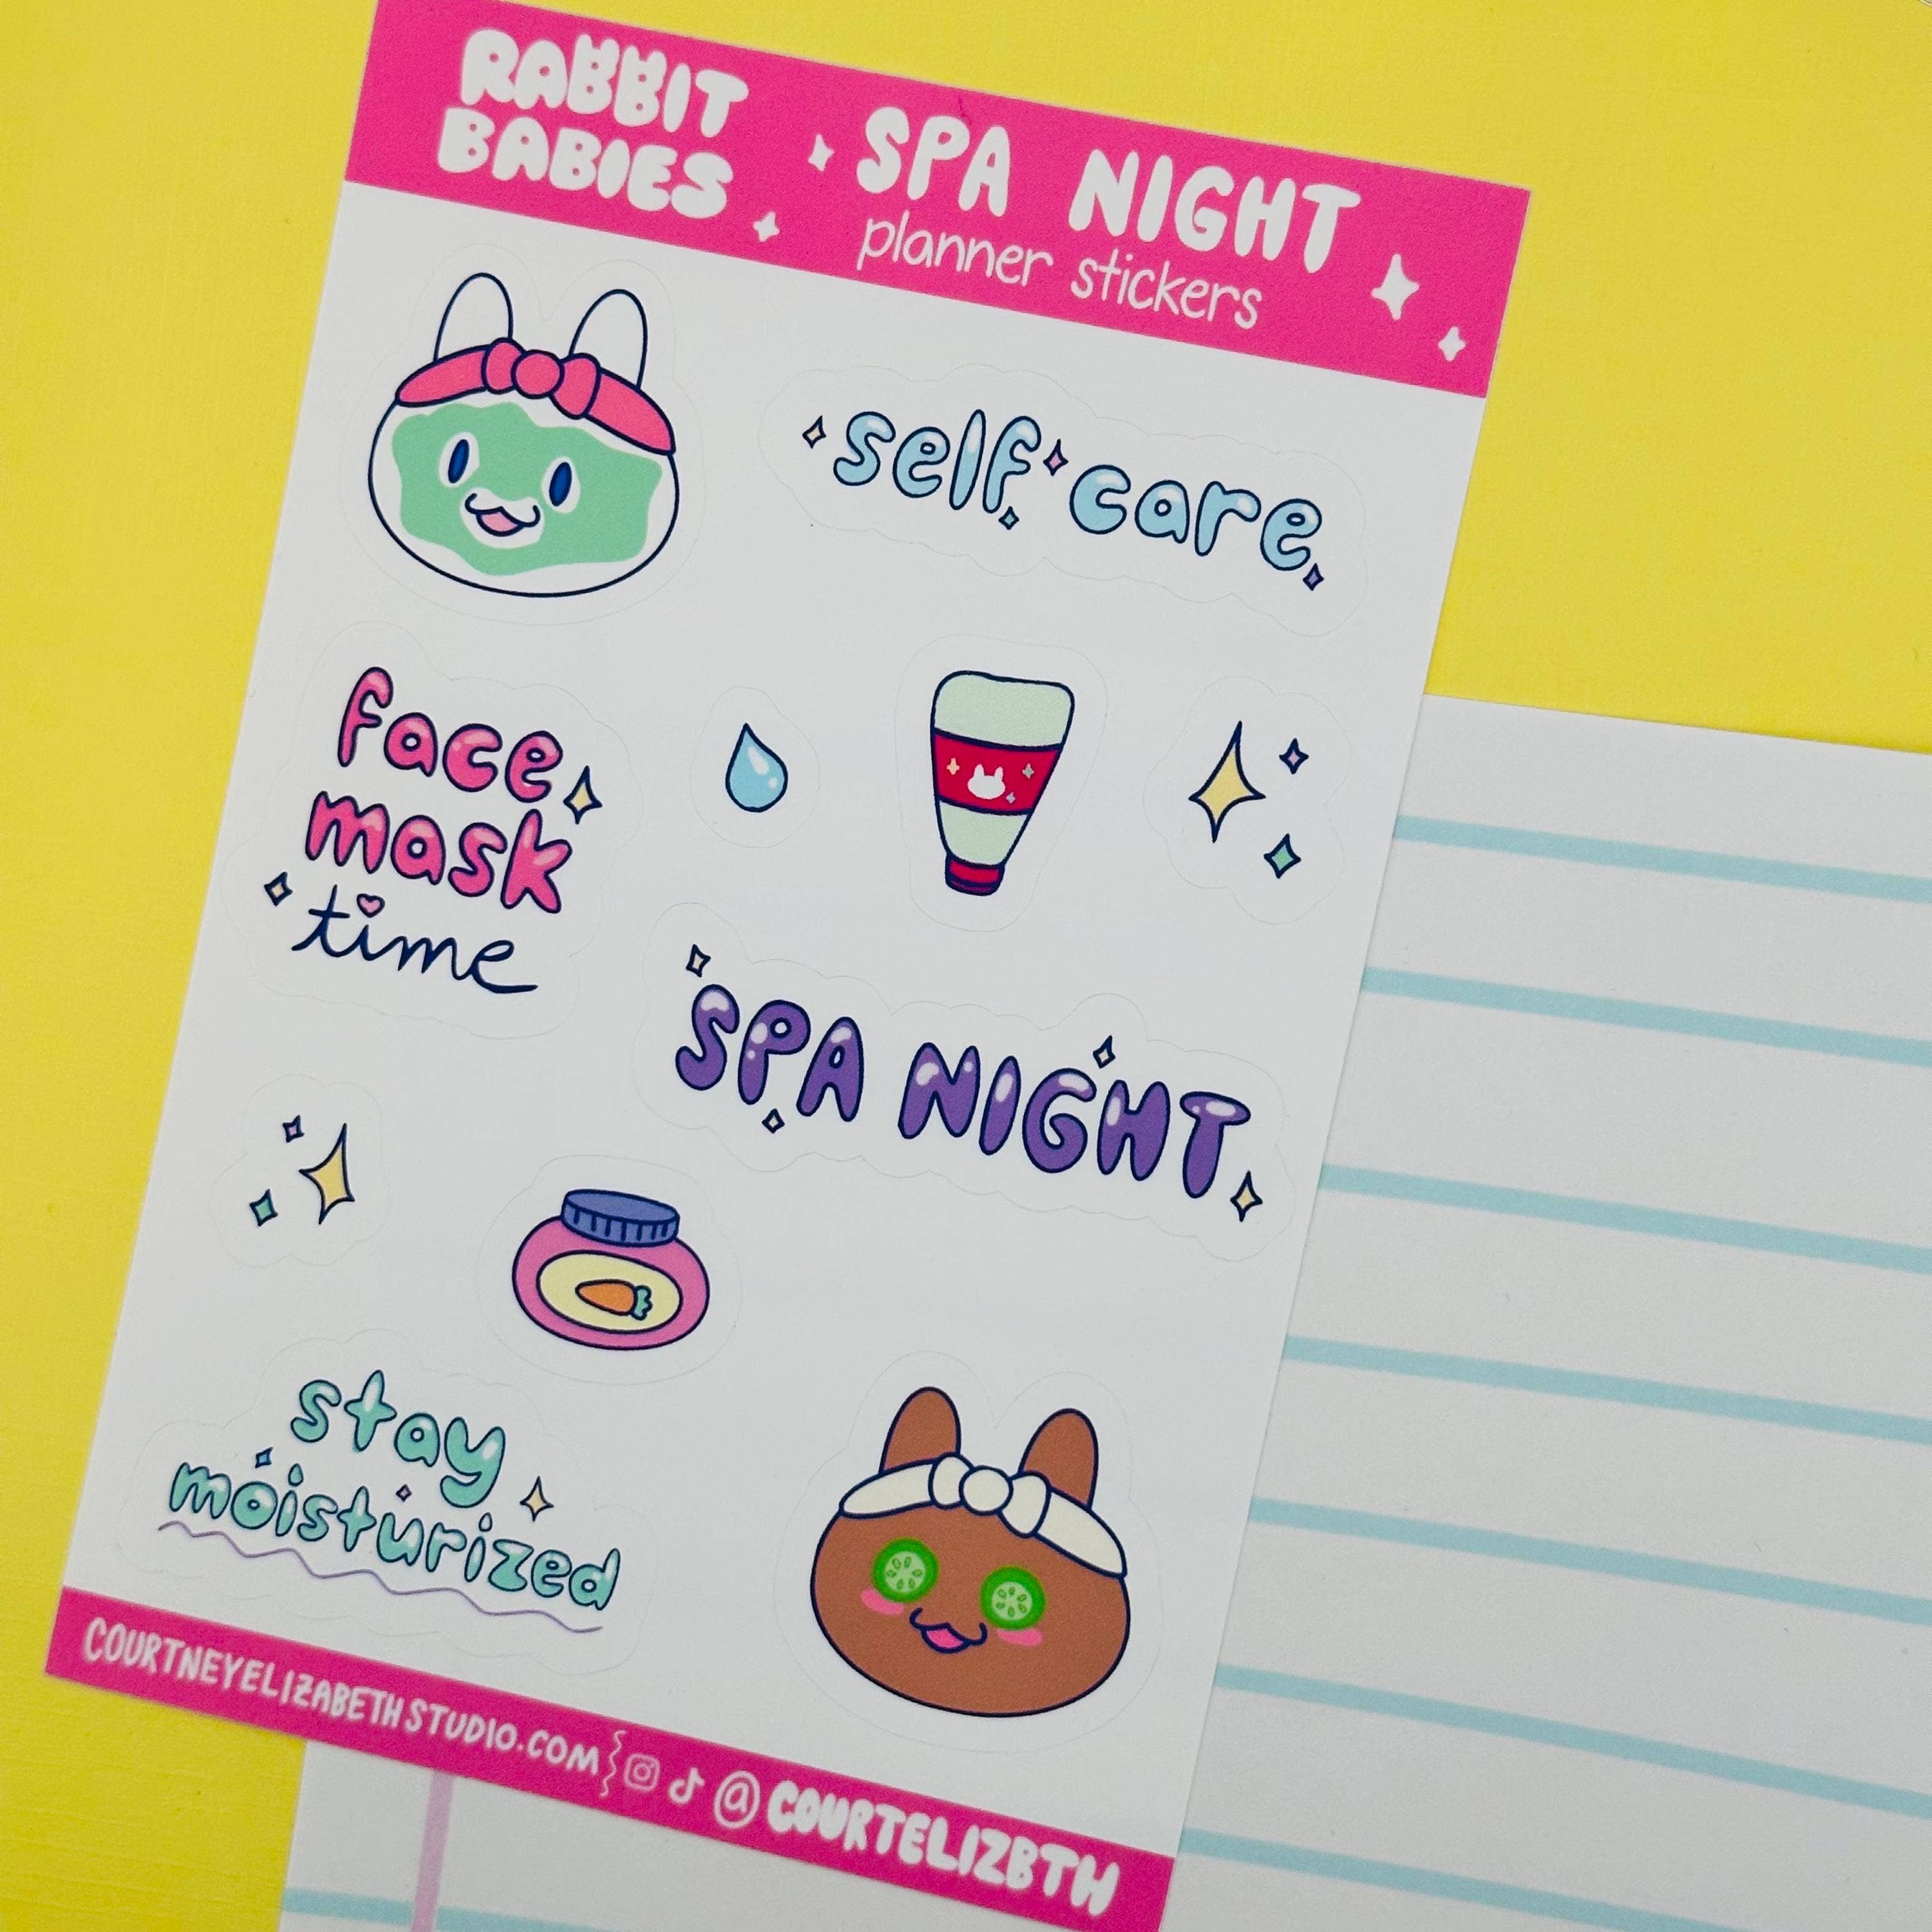 RABBIT
BABIES
SPA NIGHT
planner stickers
self care
face
mask
time
SPA NIGHT
stay
moisturized
COURTNEYELIZABETHSTUDIO.COM @COURTELIZBTH